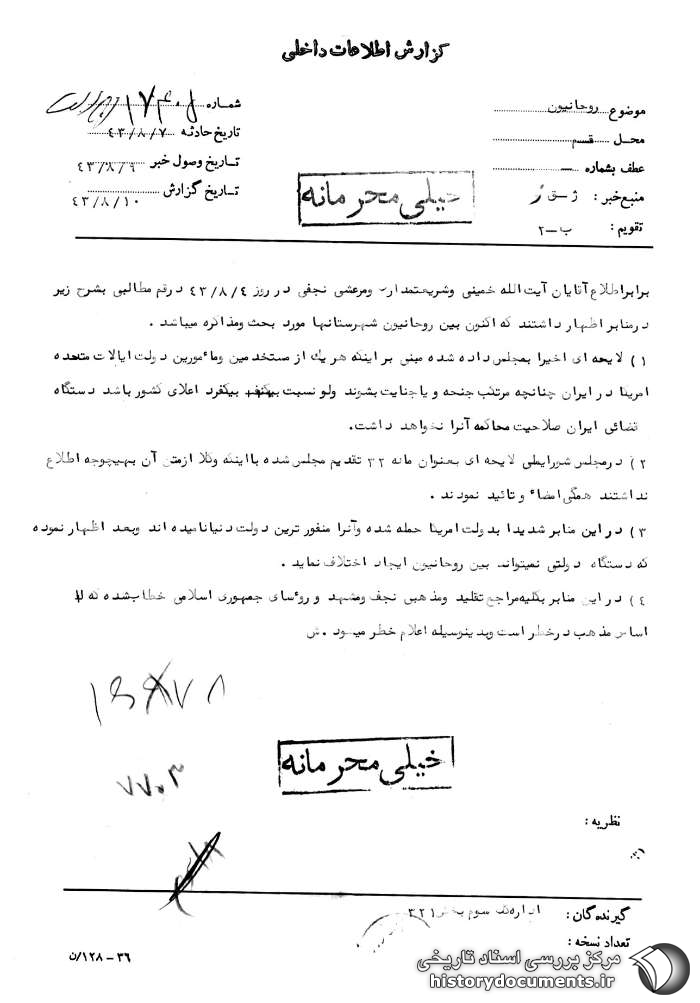 گزارش اطلاعات داخلی
موضوع روحانیون
شماره
محل قسم
تاریخ حادثه ۴۳/۸/۷
عطف بشماره —
تاریخ وصول خبر ۴۳/۸/۹
منبع خبر :
تاریخ گزارش ۴۳/۸/۱۰
تقویم : ب-۲
خیلی محرمانه
برابر اطلاع آقایان آیت الله خمینی وشریعتمداری ومرعشی نجفی در روز ۴۳/۸/۴ درقم مطالبی بشرح زیر
درمنابر اظهار داشتند که اکنون بین روحانیون شهرستانها مورد بحث ومذاکره میباشد .
۱) لایحه ای اخیرا بمجلس داده شده مبنی بر اینکه هر یک از مستخدمین ومأمورین دولت ایالات متحده
امریکا در ایران چنانچه مرتکب جنحه و یا جنایت بشوند ولو نسبت بیکفرد اعلای کشور باشد دستگاه
قضائی ایران صلاحیت محاکمه آنرا نخواهد داشت.
۲) درمجلس شورایملی لایحه ای بعنوان ماده ۳۲ تقدیم مجلس شده بااینکه وکلا ازمتن آن بهیچوجه اطلاع
نداشتند همگی امضاء و تائید نمودند .
۳) در این منابر شدیدا بدولت امریکا حمله شده وآنرا منفور ترین دولت دنیا نامیده اند وبعد اظهار نموده
که دستگاه دولتی نمیتواند بین روحانیون ایجاد اختلاف نماید .
۴) در این منابر بکلیه مراجع تقلید ومذهبی نجف ومشهد و روسای جمهوری اسلامی خطاب شده که
اساس مذهب درخطر است وبدینوسیله اعلام خطر میشود . ش
۷۷۰۳
خیلی محرمانه
نظریه :
گیرندگان : اداره کل سوم بخش ۳۲۱
تعداد نسخه :
۳۶ - ۱۲۸/ن
مرکز بررسی اسناد تاریخی
historydocuments.ir